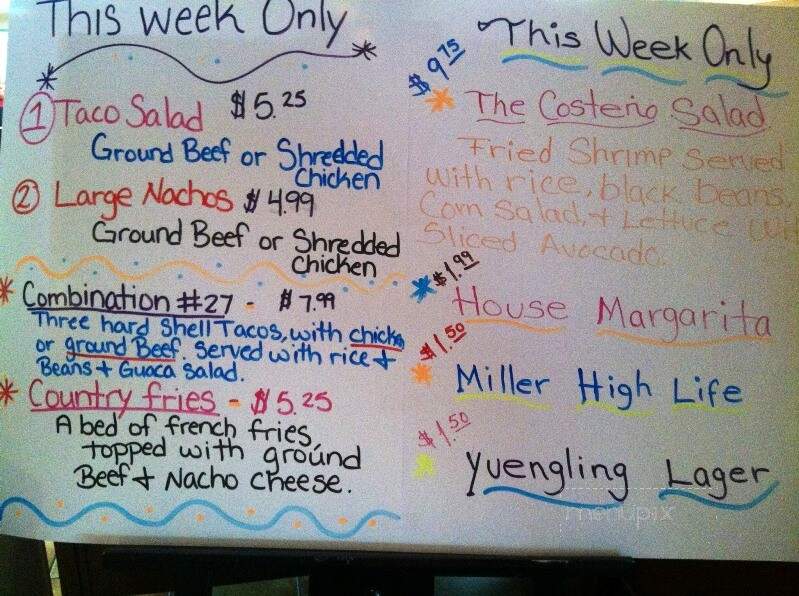 This week Only
1 Taco Salad $5.25
Ground Beef or Shredded
Chicken
2 Large Nachos $4.99
Ground Beef or Shredded
Chicken
* Combination #27 - $7.99
Three hard shell Tacos, with chicken
or ground Beef. Served with rice +
Beans + Guaca salad.
* Country fries - $5.25
A bed of french fries,
topped with ground
Beef + Nacho cheese.
This Week Only
$9.75
* The Costeño Salad
Fried Shrimp Served
with rice, black beans,
Corn Salad, + Lettuce with
Sliced Avocado.
* $1.99
House Margarita
$1.50
* Miller High Life
$1.50
* Yuengling Lager
menupix